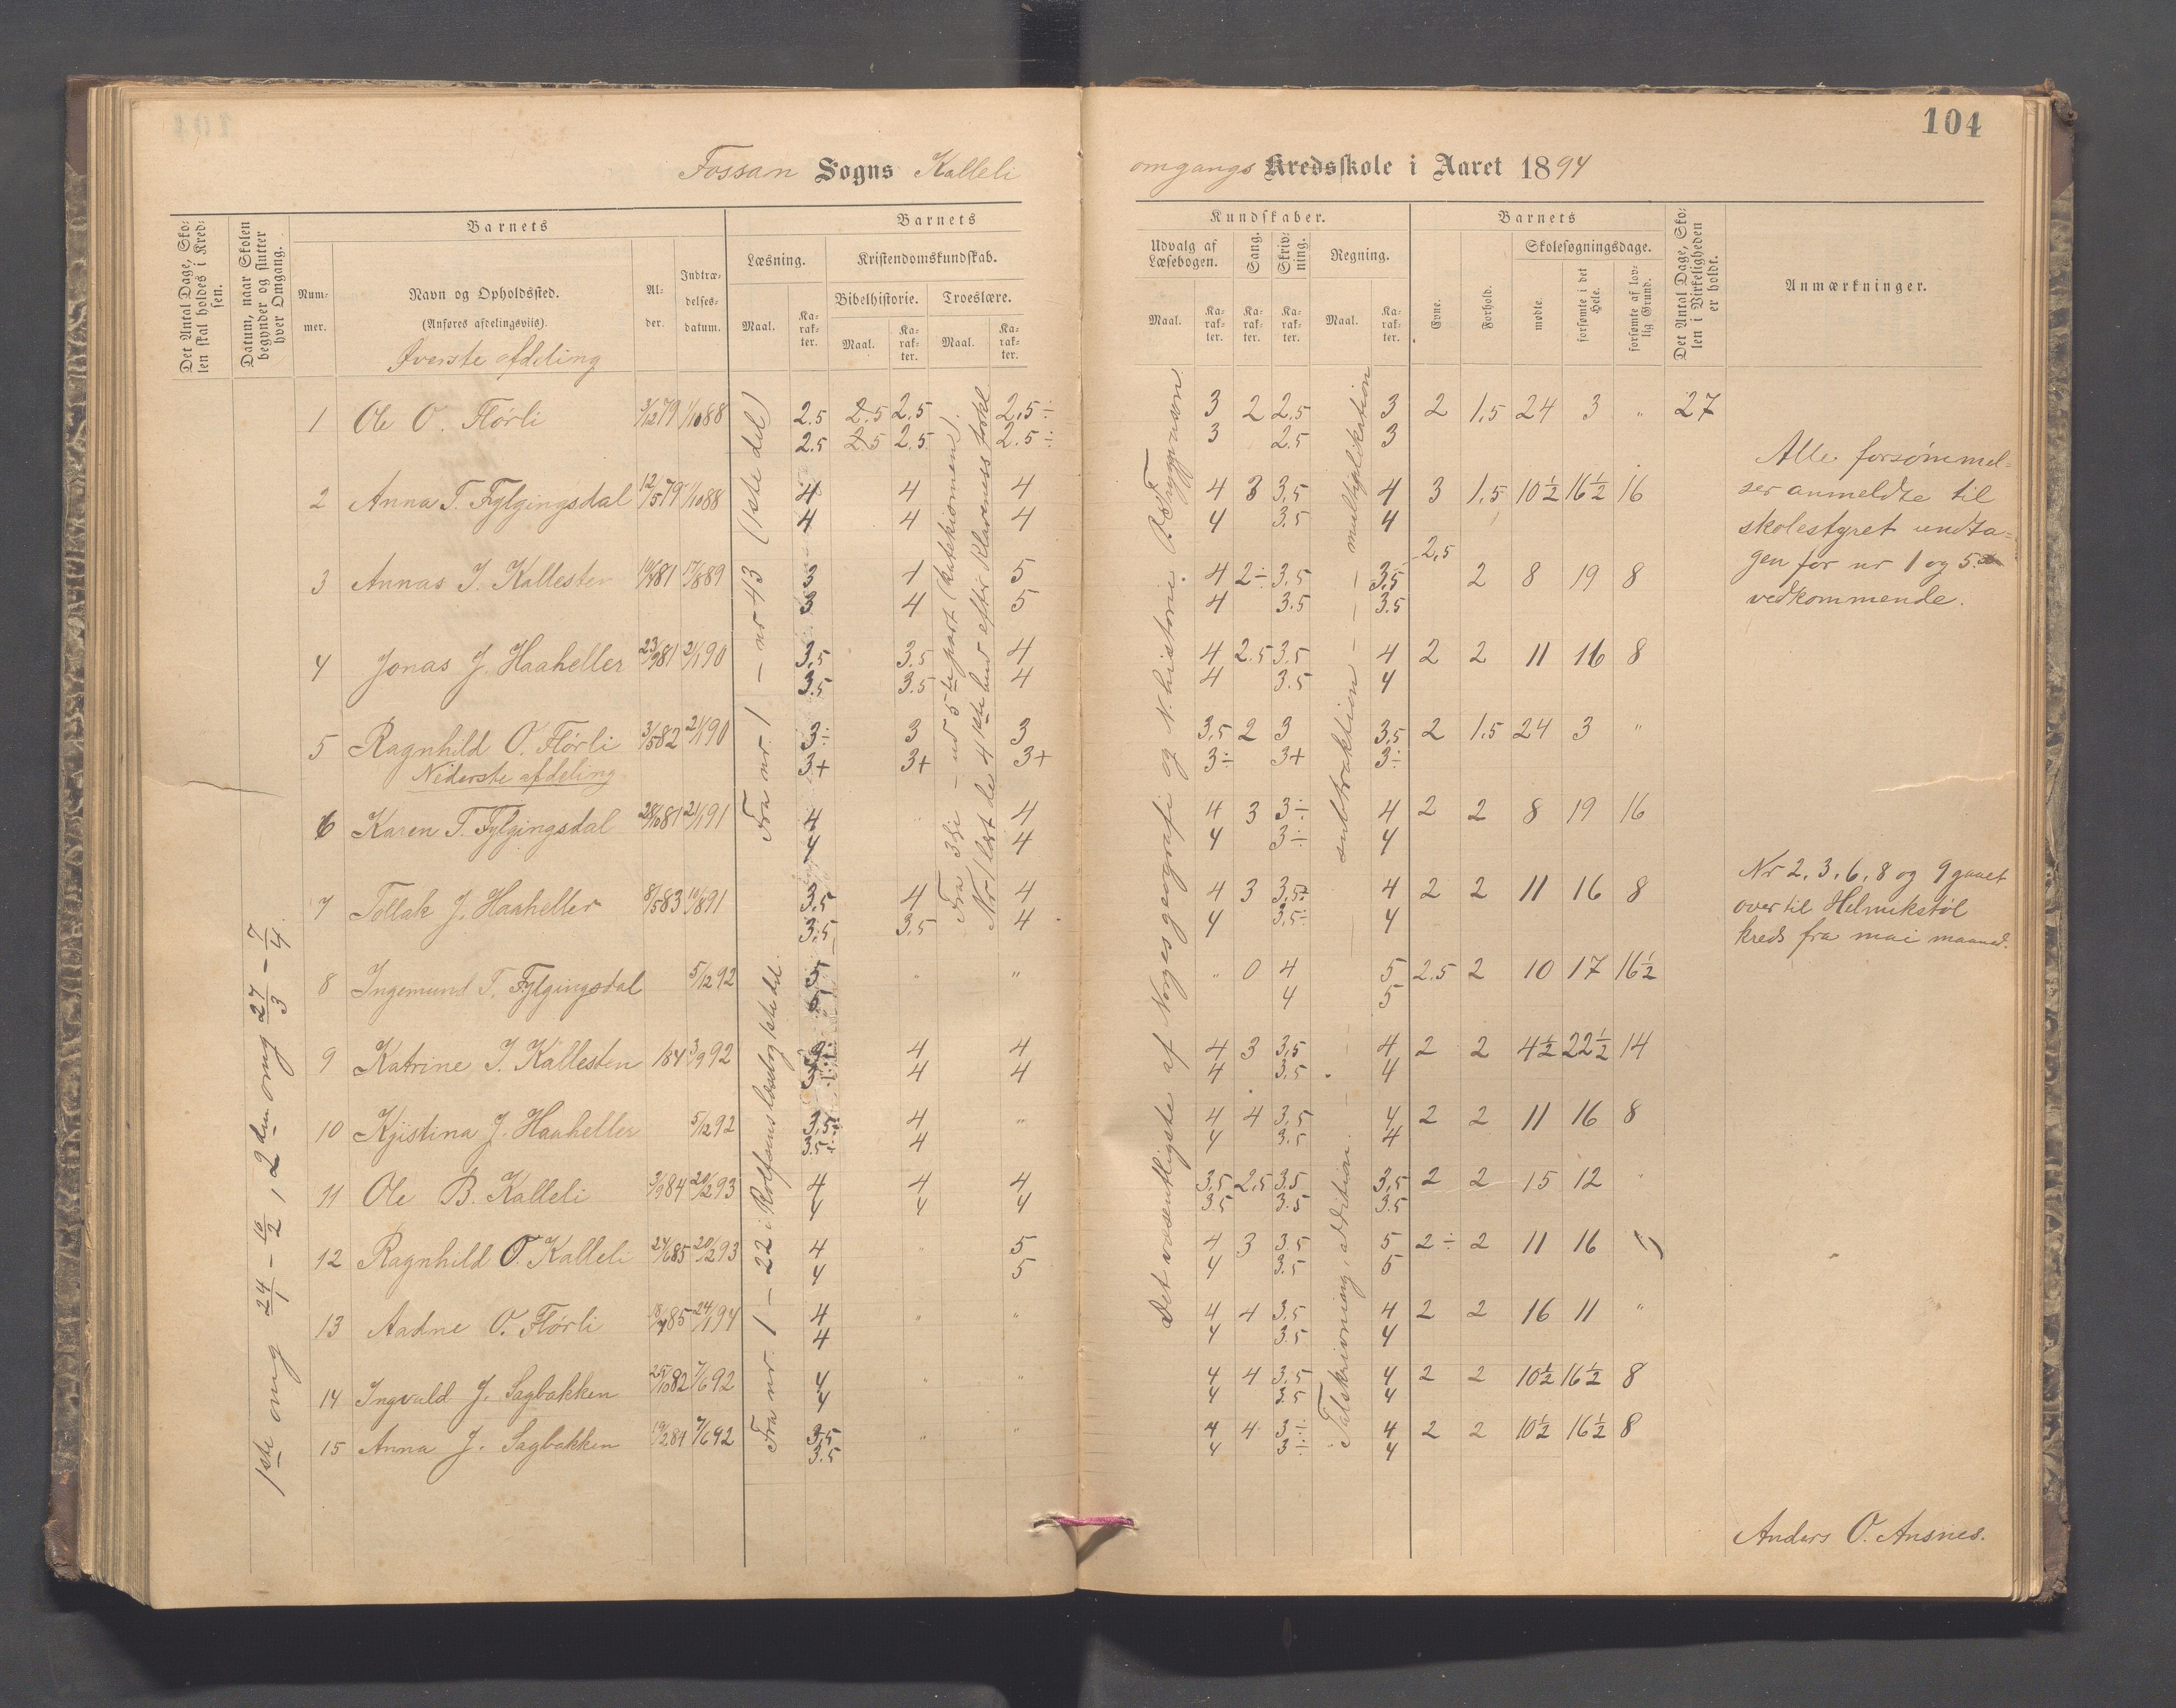 104
Fossan Sogns Kalleli
omgangs Kredsskole i Aaret 1894
Det Antal Dage, Skolen skal holdes i Kredsen.
Datum, naar Skolen begynder og slutter hver Omgang.
Barnets
Nummer.
Navn og Opholdssted.
(Anføres afdelingsviis).
Øverste afdeling
Alder.
Indtrædelsesdatum.
Barnets
Læsning.
Kristendomskundskab.
Maal.
Karakter.
Bibelhistorie.
Troeslære.
Maal.
Karakter.
Maal.
Karakter.
Kundskaber.
Udvalg af Læsebogen.
Sang.
Skrivning.
Regning.
Maal.
Karakter.
Karakter.
Karakter.
Maal.
Karakter.
Barnets
Evne.
Forhold.
Skolesøgningsdage.
mødte.
forsømte i det Hele.
forsømte af lovlig Grund.
Det Antal Dage, Skolen i Virkeligheden er holdt.
Anmærkninger.
1ste omg 24/1 - 10/2, 2den omg 27/3 - 7/4.
Fra nr. 1 - nr 43 (1ste del)
Fra nr. 1 - 22 i Rolfsens læsebog 1ste del.
Fra 3die - ud 5te part (katekismen).
Nr 1 læst de 4 1ste bud efter Klaveness forkl
Det væsentligste af Norgesgeografi og N.historie.
Talskrivning, addition - subtraktion - multiplikation
1 Ole O. Flørli 3/12 79 1/10 88 2.5 2.5 2.5 2.5÷ 3 2 2.5 3 2 1.5 24 3 " 27
2.5 2.5 2.5 2.5÷ 3 2.5 3
2 Anna T. Fylgingsdal 12/5 79 1/10 88 4 4 4 4 3 3.5 4 3 1.5 10½ 16½ 16
4 4 4 4 3.5 4
3 Annas J. Kallesten 81 17/8 89 3 4 5 4 2÷ 3.5 3.5 2.5 2 8 19 8
3 4 5 4 3.5 3.5
4 Jonas J. Haaheller 23/9 81 21/1 90 3.5 3.5 4 4 2.5 3.5 4 2 2 11 16 8
3.5 3.5 4 4 3.5 4
5 Ragnhild O. Flørli 3/5 82 21/1 90 3÷ 3 3 3.5 2 3 3.5 2 1.5 24 3 "
3+ 3+ 3+ 3÷ 3+ 3÷
Nederste afdeling
6 Karen T. Fylgingsdal 28/10 81 21/1 91 4 4 4 3 3÷ 4 2 2 8 19 16
4 4 4 3÷ 4
7 Tollak J. Haaheller 8/5 83 10/8 91 3.5 4 4 4 3 3.5÷ 4 2 2 11 16 8
3.5 3.5 4 4 3.5÷ 4
8 Ingemund T. Fylgingsdal 5/12 92 5 " " " 0 4 5 2.5 2 10 17 16½
5 4 5
9 Katrine J. Kallesten 84 3/9 92 4 4 4 3 3.5 4 2 2 4½ 22½ 14
4 4 4 3.5 4
10 Kjistina J. Haaheller 5/12 92 3.5÷ 4 " 4 4 3.5 4 2 2 11 16 8
3.5÷ 4 4 3.5 4
11 Ole B. Kalleli 3/9 84 20/2 93 4 4 4 3.5 2.5 3.5 3.5 2 2 15 12 "
4 4 4 3.5 3.5 3.5
12 Ragnhild O. Kalleli 24/6 85 20/2 93 4 " 5 4 3 3.5 5 2÷ 2 11 16 "
4 5 4 3.5 5
13 Aadne O. Flørli 85 24/1 94 4 " " 4 4 3.5 4 2 2 16 11 "
4 4 3.5 4
14 Ingvald J. Sagbakken 25/10 82 7/6 92 4 " " 4 4 3.5 4 2 2 10½ 16½ 8
4 4 3.5 4
15 Anna J. Sagbakken 19/2 84 7/6 92 3.5 " " 4 4 3÷ 4 2 2 10½ 16½ 8
3.5 4 3÷ 4
Alle forsømmel=
ser anmeldte til
skolestyret undta=
gen for nr 1 og 5
vedkommende.
Nr 2, 3, 6, 8 og 9 gaaet
over til Helmikstøl
kreds fra mai maaned.
Anders O. Ansnes.